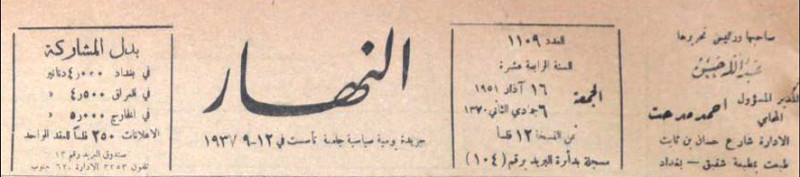 صاحبها ورئيس تحريرها
عبد الله حسن
المدير المسؤول احمد مدحت
المحامي
الادارة شارع حسان بن ثابت
طبعت بمطبعة شفيق - بغداد
العدد ١١٠٩
السنة الرابعة عشرة
الجمعة
١٦ آذار ١٩٥١
٦ جمادي الثاني ١٣٧٠
ثمن النسخة ١٢ فلساً
مسجلة بدائرة البريد برقم (١٠٤)
النهار
جريدة يومية سياسية جامعة تأسست في ١٢-٩-١٩٣٧
بدل المشاركة
في بغداد ٤٫٠٠٠ دنانير
في العراق ٤٫٥٠٠ «
في الخارج ٥٫٠٠٠ «
الاعلانات ٢٥٠ فلساً للعقد الواحد
صندوق البريد رقم ١٣
تلفون ٣٢٥٣ الادارة ٦٢ جنوب